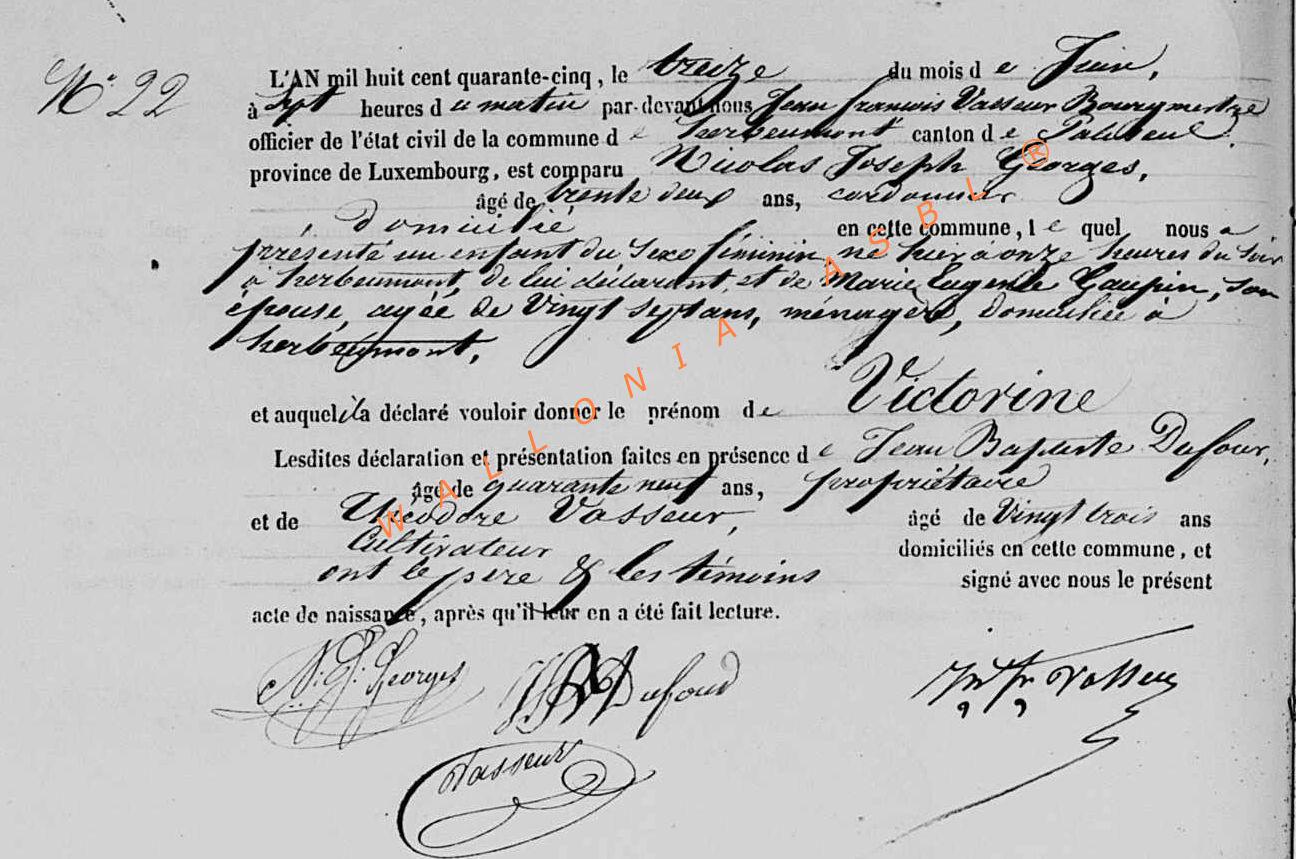 N° 22
L'AN mil huit cent quarante-cinq, le treize du mois de Juin,
à Sept heures du matin par-devant nous Jean françois Vasseur Bourgmestre
officier de l'état civil de la commune de herbeumont canton de Paliseul,
province de Luxembourg, est comparu Nicolas Joseph Georges,
âgé de trente deux ans, cordonnier
domicilié en cette commune, le quel nous a
présenté un enfant du Sexe féminin né hier à onze heures du Soir
à herbeumont, de lui déclarant, et de Marie Eugenie Gaupin, son
épouse, agée de Vingt Sept ans, ménagere, domiciliée à
herbeumont,
et auquel il a déclaré vouloir donner le prénom de Victorine
Lesdites déclaration et présentation faites en présence de Jean Baptiste Dufour,
âgé de quarante neuf ans, propriétaire
et de Théodore Vasseur, âgé de Vingt trois ans
Cultivateur domiciliés en cette commune, et
ont le père & les témoins signé avec nous le présent
acte de naissance, après qu'il leur en a été fait lecture.
N. J. Georges Dufour Vasseur
Vasseur
WALLONIA ASBL ®